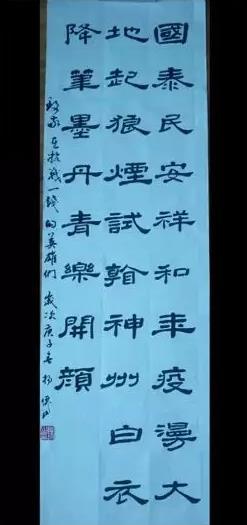 國泰民安祥和年疫漫大
地起狼煙試翰神州白衣
降筆墨丹青樂開顏
在抗戰一綫的英雄们 歲次庚子春 楊